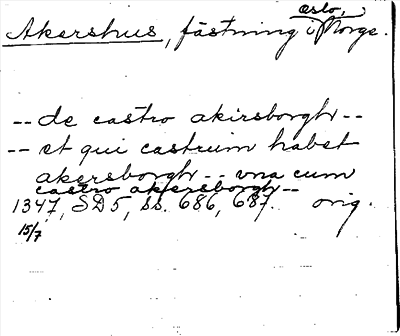 Akershus, fästning i Oslo, Norge.
-- de castro akirsborghr --
-- et qui castrum habet
akersborghr -- vna cum
castro akersborghr --
1347, SD5, ss. 686, 687. orig.
15/7